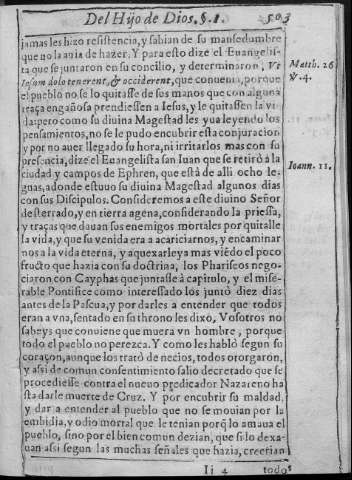 Del Hijo de Dios. §. I. 503
jamas les hizo resistencia, y sabian de su mansedumbre
que no la auia de hazer. Y para esto dize el Euangelis-
ta que se juntaron en su concilio, y determinaron, Vt
Iesum dolo tenerent, & occiderent, que conuenia, porque
el pueblo no se lo quitasse de sus manos que con alguna
traça engañosa prendiessen a Iesus, y le quitassen la vi-
da: pero como su diuina Magestad les yua leyendo los
pensamientos, no se le pudo encubrir esta conjuracion
y por no auer llegado su hora, ni irritarlos mas con su
presencia, dize el Euangelista san Iuan que se retirò a la
ciudad y campos de Ephren, que està de alli ocho le-
guas, adonde estuuo su diuina Magestad algunos dias
con sus Discipulos. Consideremos a este diuino Señor
desterrado, y en tierra agena, considerando la priessa,
y traças que dauan sus enemigos mortales por quitalle
la vida, y que su venida era a acariciarnos, y encaminar
nos a la vida eterna, y a quexarleya mas viẽdo el poco
fructo que hazia con su doctrina, los Phariseos nego-
ciaron con Cayphas que juntasse à capitulo, y el mise-
rable Pontifice como interessado los juntò diez dias
antes de la Pascua, y por darles a entender que todos
eran a vna, sentado en su throno les dixò, Vosotros no
sabeys que conuiene que muera vn hombre, porque
todo el pueblo no perezca. Y como les hablò segun su
coraçon, aunque los tratò de necios, todos otorgaron,
y assi de comun consentimiento salio decretado que se
procediesse contra el nueuo predicador Nazareno ha
sta darle muerte de Cruz. Y por encubrir su maldad,
y dar a entender al pueblo que no se mouian por la
embidia, y odio mortal que le tenian porq̃ lo amaua el
pueblo, sino por el bien comun dezian, que si lo dexa-
uan assi segun las muchas señales que hazia, creerian
Ii 4 todos
Matth. 26
℣. 4.
Ioann. 11.